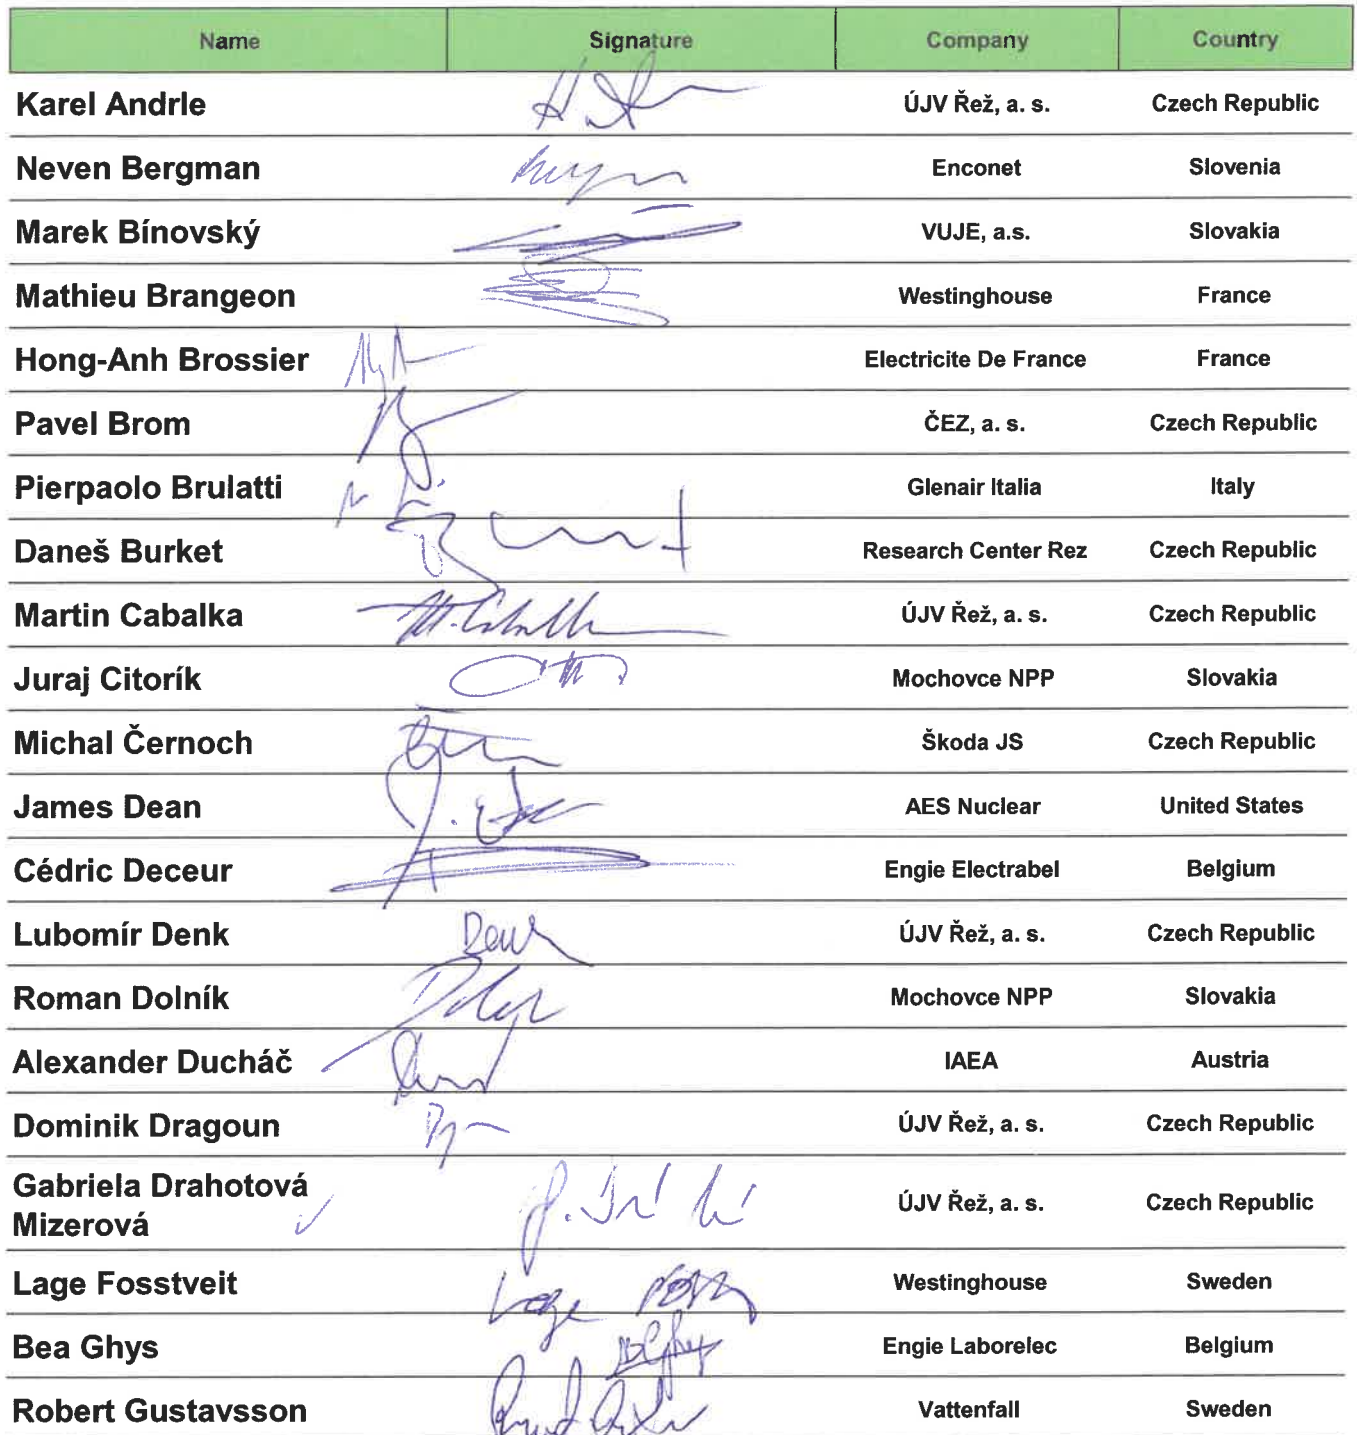 Name Signature Company Country
Karel Andrle ÚJV Řež, a. s. Czech Republic
Neven Bergman Enconet Slovenia
Marek Bínovský VUJE, a.s. Slovakia
Mathieu Brangeon Westinghouse France
Hong-Anh Brossier Electricite De France France
Pavel Brom ČEZ, a. s. Czech Republic
Pierpaolo Brulatti Glenair Italia Italy
Daneš Burket Research Center Rez Czech Republic
Martin Cabalka ÚJV Řež, a. s. Czech Republic
Juraj Citorík Mochovce NPP Slovakia
Michal Černoch Škoda JS Czech Republic
James Dean AES Nuclear United States
Cédric Deceur Engie Electrabel Belgium
Lubomír Denk Denk ÚJV Řež, a. s. Czech Republic
Roman Dolník Mochovce NPP Slovakia
Alexander Ducháč IAEA Austria
Dominik Dragoun ÚJV Řež, a. s. Czech Republic
Gabriela Drahotová
Mizerová ÚJV Řež, a. s. Czech Republic
Lage Fosstveit Lage Westinghouse Sweden
Bea Ghys Engie Laborelec Belgium
Robert Gustavsson Vattenfall Sweden